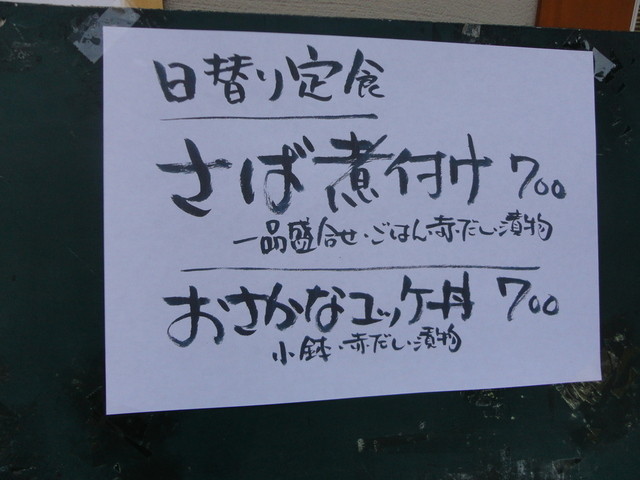 日替り定食
さば煮付け 700
一品盛合せ・ごはん・赤だし・漬物
おさかなユッケ丼 700
小鉢・赤だし・漬物